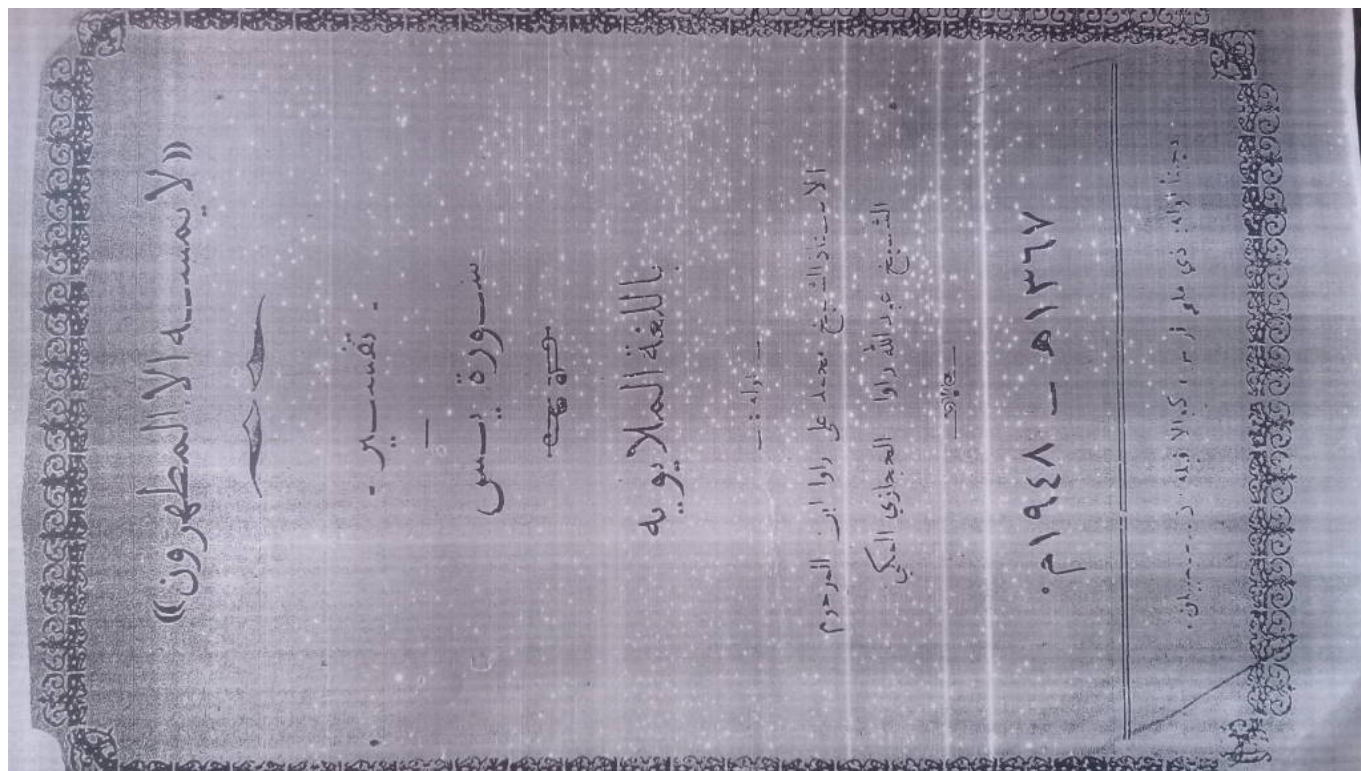 «لا يمسه الا المطهرون»
- تفسير -
سورة يس
باللغة الملايويه
- اوله :-
الاستاذ الشيخ محمد علي راوا ابن المرحوم
الشيخ عبدالله راوا الحجازي المكي
١٣٦٧هـ - ١٩٤٨م.
دچيتق اوله: دي ملو